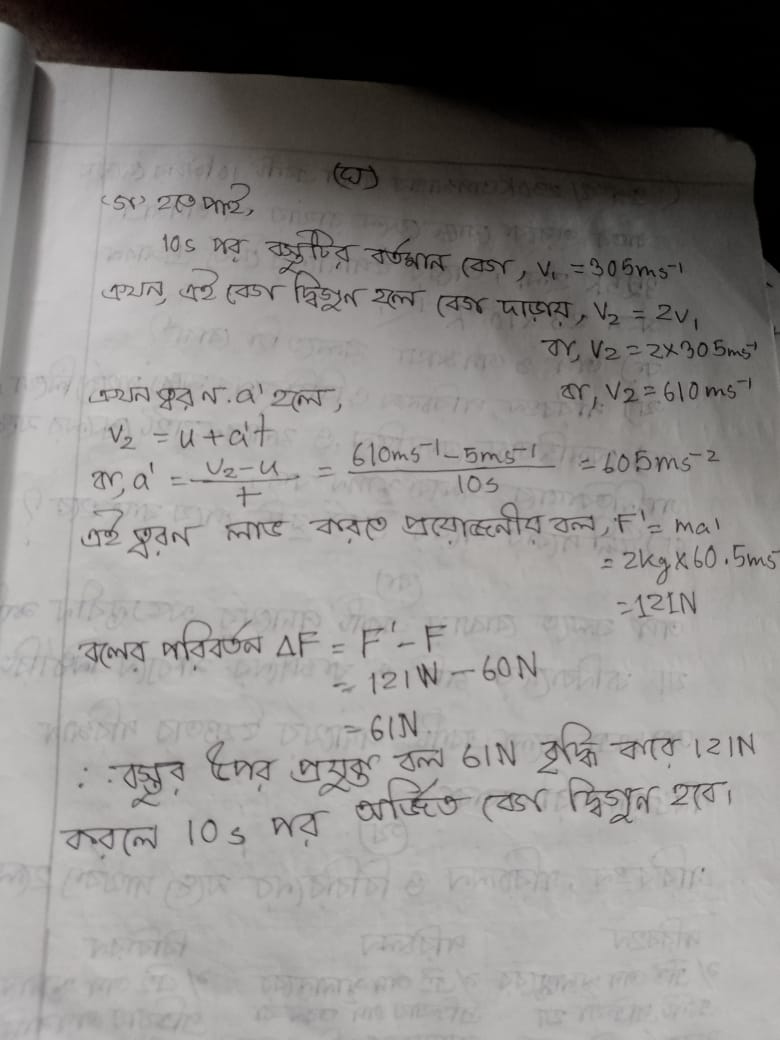 (ঘ)
'গ' হতে পাই,
10s পর বস্তুটির বর্তমান বেগ, v₁ = 305ms⁻¹
এখন, এই বেগ দ্বিগুন হলে বেগ দাড়ায়, v₂ = 2v₁
বা, v₂ = 2×305ms⁻¹
বা, v₂ = 610ms⁻¹
এখন ত্বরন a' হলে,
v₂ = u + a't
বা, a' = (v₂ - u)/t = (610ms⁻¹ - 5ms⁻¹)/10s = 605ms⁻²
এই ত্বরন লাভ করতে প্রয়োজনীয় বল, F' = ma'
= 2kg × 60.5ms
= 121N
বলের পরিবর্তন ΔF = F' - F
= 121N - 60N
= 61N
∴ বস্তুর উপর প্রযুক্ত বল 61N বৃদ্ধি করে 121N
করলে 10s পর অর্জিত বেগ দ্বিগুন হবে।